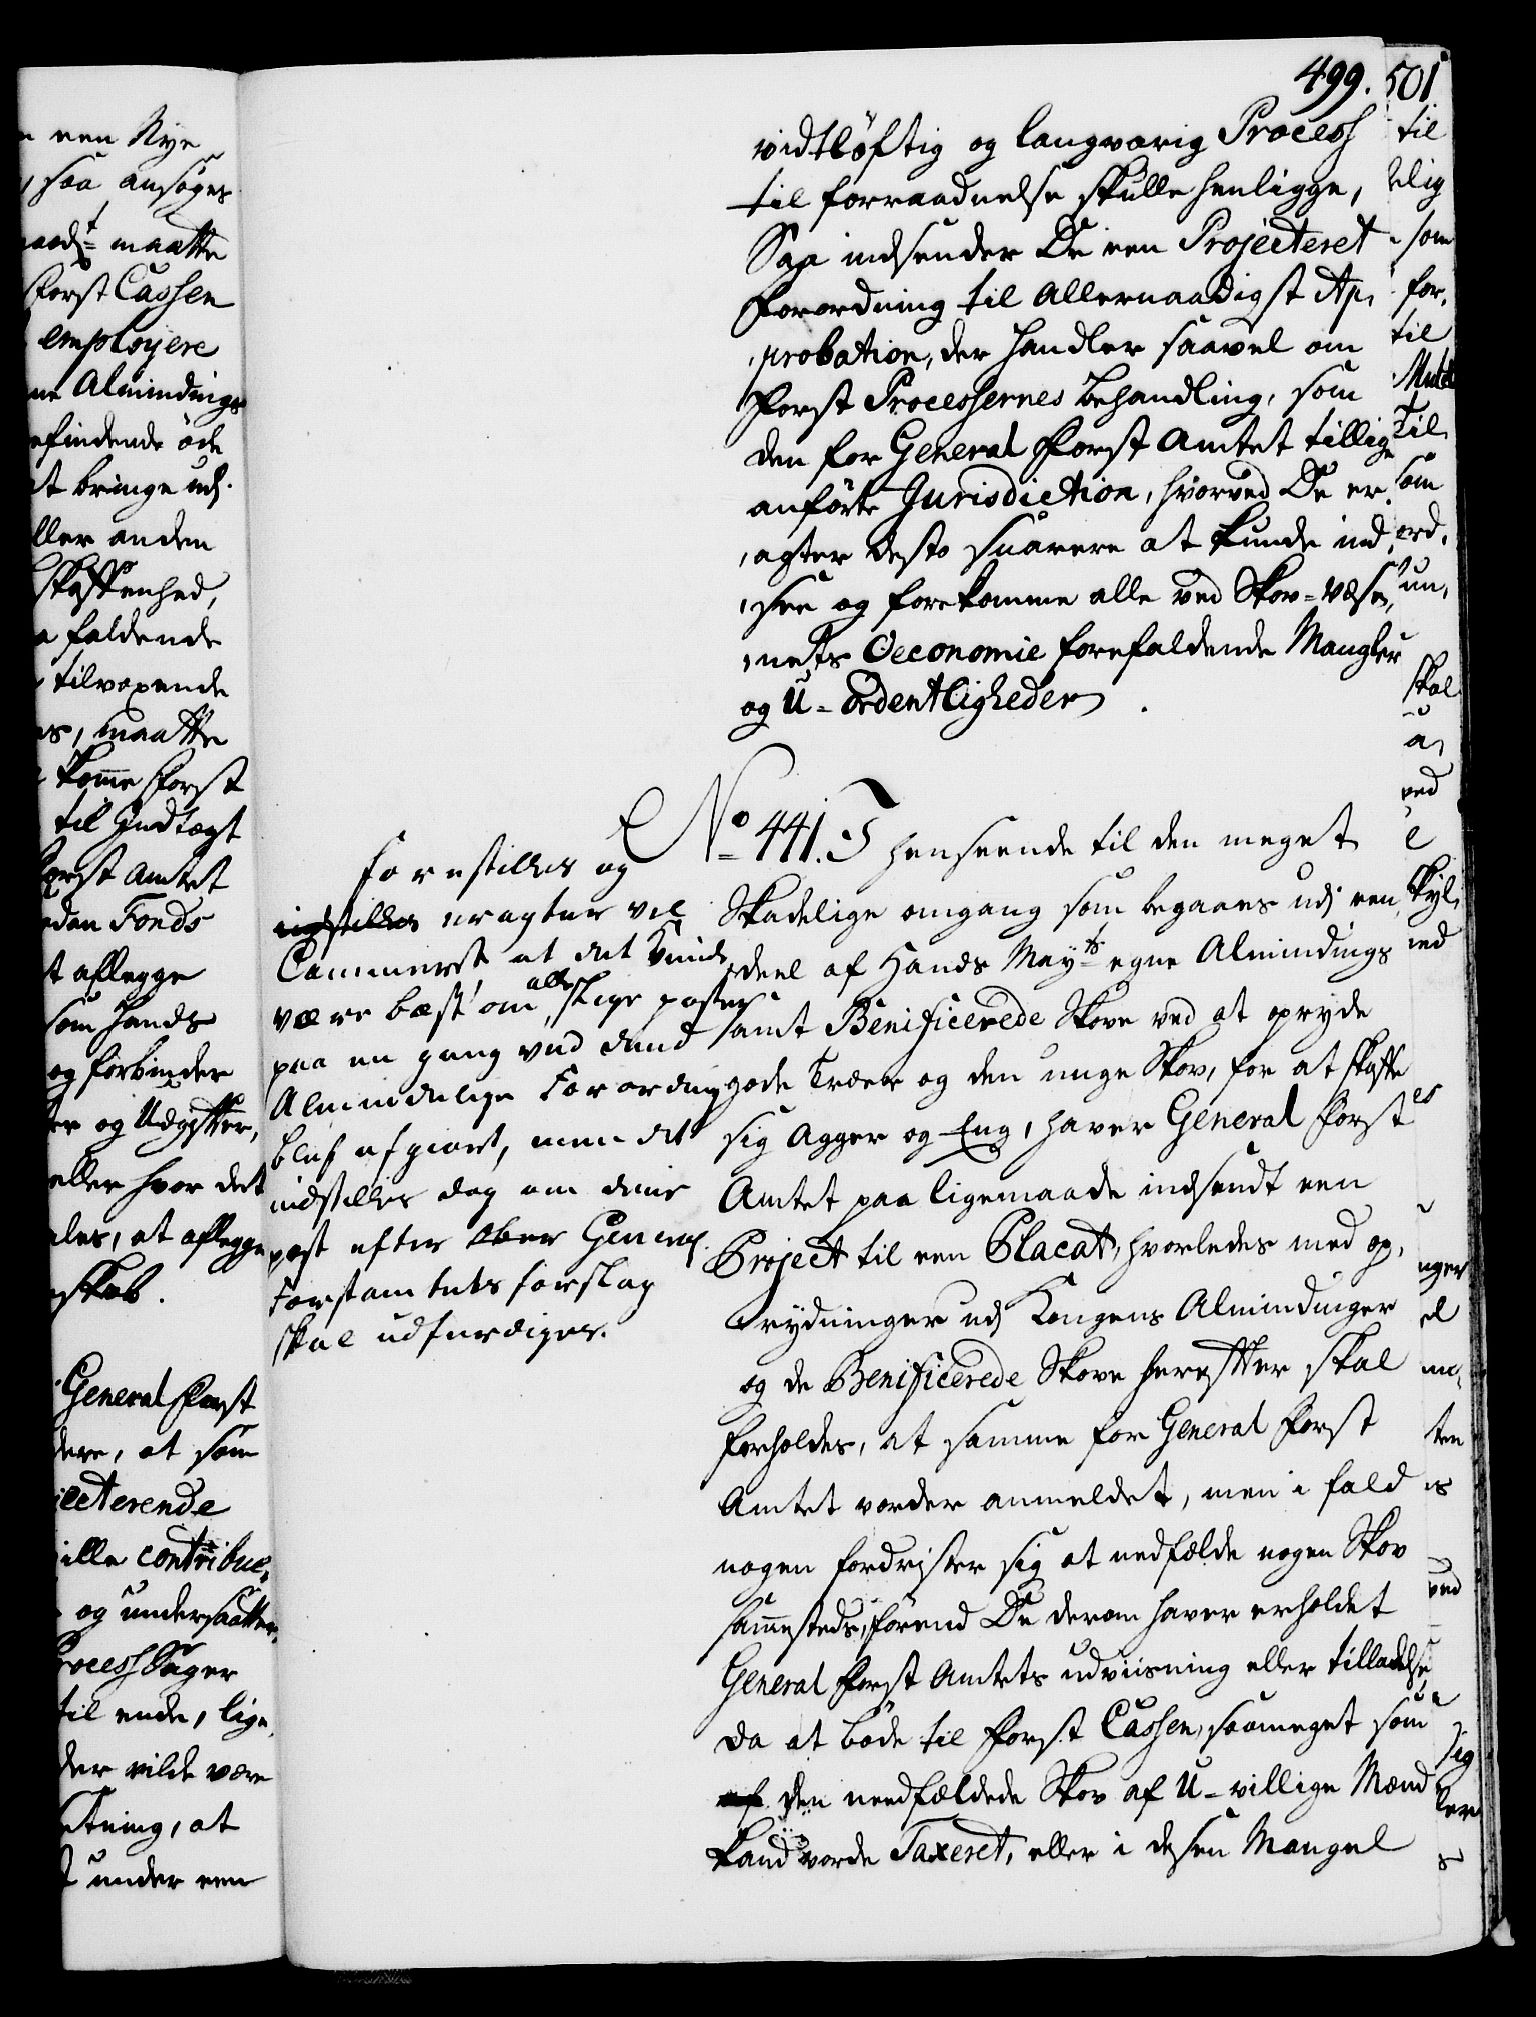 499.
vidtløftig og langvarig Process
til forraadnelse skulle henligge,
Saa indsender De een Projecteret
Forordning til Allernaadigst Ap,
,probation, der handler saavel om
Forst Processernes behandling, som
den for General Forst Amtet tillige
anførte Jurisdiction, hvorved De er,
,agter desto snarere at kunde ind,
,see og forekomme alle ved Skov-Væse,
,nets Oeconomie forefaldende Mangler
og U-ordentligheder.
No 441. I henseende til den meget
Skadelige omgang som begaaes udj een
deel af Hands Mayts egne Almindings
samt Benificerede Skove ved at opryde
gode Træer og den unge Skov, for at skaffe
sig Agger og Eng, haver General Forst
Amtet paa ligemaade indsendt een
Project til een Placat, hvorledes med op,
,rydninger udj Kongens Almindinger
og de Benificerede Skove herefter skal
forholdes, at samme for General Forst
Amtet vorder anmeldet, men i fald
nogen fordrister sig at nedfælde nogen Skov
sammesteds, førend De derom haver erholdet
General Forst Amtets udviisning eller tilladelse
da at bøde til Forst Cassen, saameget som
af den needfældede Skov af U-villige Mænd
kand vorde Taxeret, eller i dessen Mangel
forestilles og
indstilles eragter vel
Cammeret at det kunde
være bæst om alle slige poster
paa en gang ved dend
Almindelige Forordning
blef afgiort, men det
indstilles dog om denne
post efter Ober General
Forstamtets forslag
skal udferdiges.
een Nye
saa ansøges
maatte
Forst Cassen
employere
Almindings
efindende øde
t bringe udj
ller anden
skaffenhed,
faldende
tilvoxende
maatte
komme Forst
til Indtægt
Forst Amtet
Fonds
t aflegge
som Hands
og forbinder
er og Udgifter,
eller hvor det
ales, at aflegge
skab.
General Forst
dere, at som
ecterende
ille contribue,
og undersaatter,
rocess Sager
til ende, lige,
der vilde være
tning, at
t under een
501
til
elig
som
for,
til
Til
som
ord,
un,
skal
a,
ved
e
skyl,
ved
es
nger
el
me,
ten
is
ved
sig
ler